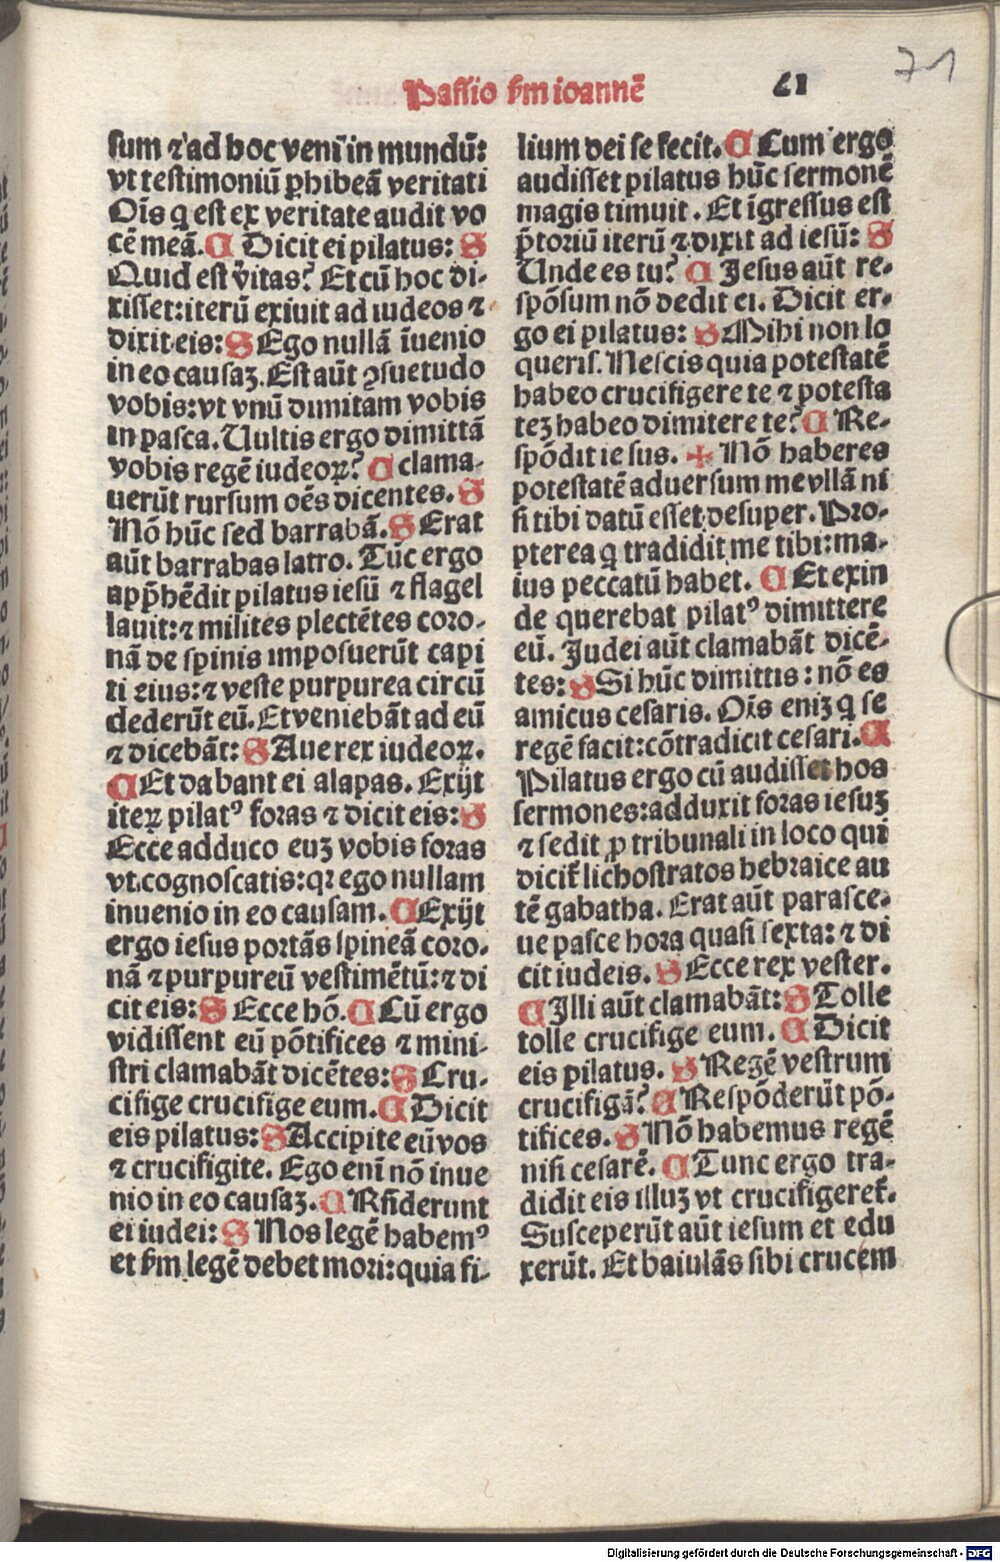 Passio ẜm ioannē
61
71
sum ⁊ ad hoc veni in mundū:
vt testimoniū ꝑhibeā veritati
Oīs q est ex veritate audit vo
cē meā. ¶ Dicit ei pilatus: S
Quid est v̄itas? Et cū hoc di-
xisset: iterū exiuit ad iudeos ⁊
dixit eis: S Ego nullā īuenio
in eo causaꝫ. Est aūt ꝯsuetudo
vobis: vt vnū dimitam vobis
in pasca. Uultis ergo dimittā
vobis regē iudeoꝝ? ¶ clama-
uerūt rursum oēs dicentes. S
Nō hūc sed barrabā. S Erat
aūt barrabas latro. Tūc ergo
app̄hēdit pilatus iesū ⁊ flagel
lauit: ⁊ milites plectētes coro-
nā de spinis imposuerūt capi
ti eius: ⁊ veste purpurea circū
dederūt eū. Et veniebāt ad eū
⁊ dicebāt: S Aue rex iudeoꝝ.
¶ Et dabant ei alapas. Exijt
iteꝝ pilatꝰ foras ⁊ dicit eis: S
Ecce adduco euꝫ vobis foras
vt cognoscatis: qꝛ ego nullam
inuenio in eo causam. ¶ Exijt
ergo iesus portās spineā coro-
nā ⁊ purpureū vestimētū: ⁊ di
cit eis: S Ecce hō. ¶ Cū ergo
vidissent eū pōtifices ⁊ mini-
stri clamabāt dicētes: S Cru-
cifige crucifige eum. ¶ Dicit
eis pilatus: S Accipite eū vos
⁊ crucifigite. Ego enī nō inue
nio in eo causaꝫ. ¶ Rn̄derunt
ei iudei: S Nos legē habemꝰ
et ẜm legē debet mori: quia fi-
lium dei se fecit. ¶ Cum ergo
audisset pilatus hūc sermonē
magis timuit. Et īgressus est
p̄toriū iterū ⁊ dixit ad iesū: S
Unde es tu? ¶ Jesus aūt re-
spōsum nō dedit ei. Dicit er-
go ei pilatus: S Mihi non lo
queris. Nescis quia potestatē
habeo crucifigere te ⁊ potesta
teꝫ habeo dimitere te? ¶ Re-
spōdit ie sus. ✠ Nō haberes
potestatē aduersum me vllā ni
si tibi datū esset desuper. Pro-
pterea q tradidit me tibi: ma-
ius peccatū habet. ¶ Et exin
de querebat pilatꝰ dimittere
eū. Judei aūt clamabāt dicē-
tes: S Si hūc dimittis: nō es
amicus cesaris. Oīs enīꝫ q se
regē facit: cōtradicit cesari. ¶
Pilatus ergo cū audisset hos
sermones: adduxit foras iesuꝫ
⁊ sedit ꝓ tribunali in loco qui
dicit᷑ lichostratos hebraice au
tē gabatha. Erat aūt parasce-
ue pasce hora quasi sexta: ⁊ di
cit iudeis. S Ecce rex vester.
¶ Illi aūt clamabāt: S Tolle
tolle crucifige eum. ¶ Dicit
eis pilatus. S Regē vestrum
crucifigā? ¶ Respōderūt pō-
tifices. S Nō habemus regē
nisi cesarē. ¶ Tunc ergo tra-
didit eis illuꝫ vt crucifigeret᷑.
Susceperūt aūt iesum et edu
xerūt. Et baiulās sibi crucem
Digitalisierung gefördert durch die Deutsche Forschungsgemeinschaft - DFG